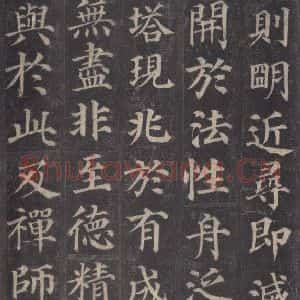 則眀近尋即滅
開於法性舟泛
塔現兆於有成
無盡非至德精
與於此及禪師
Shufawang.Cn